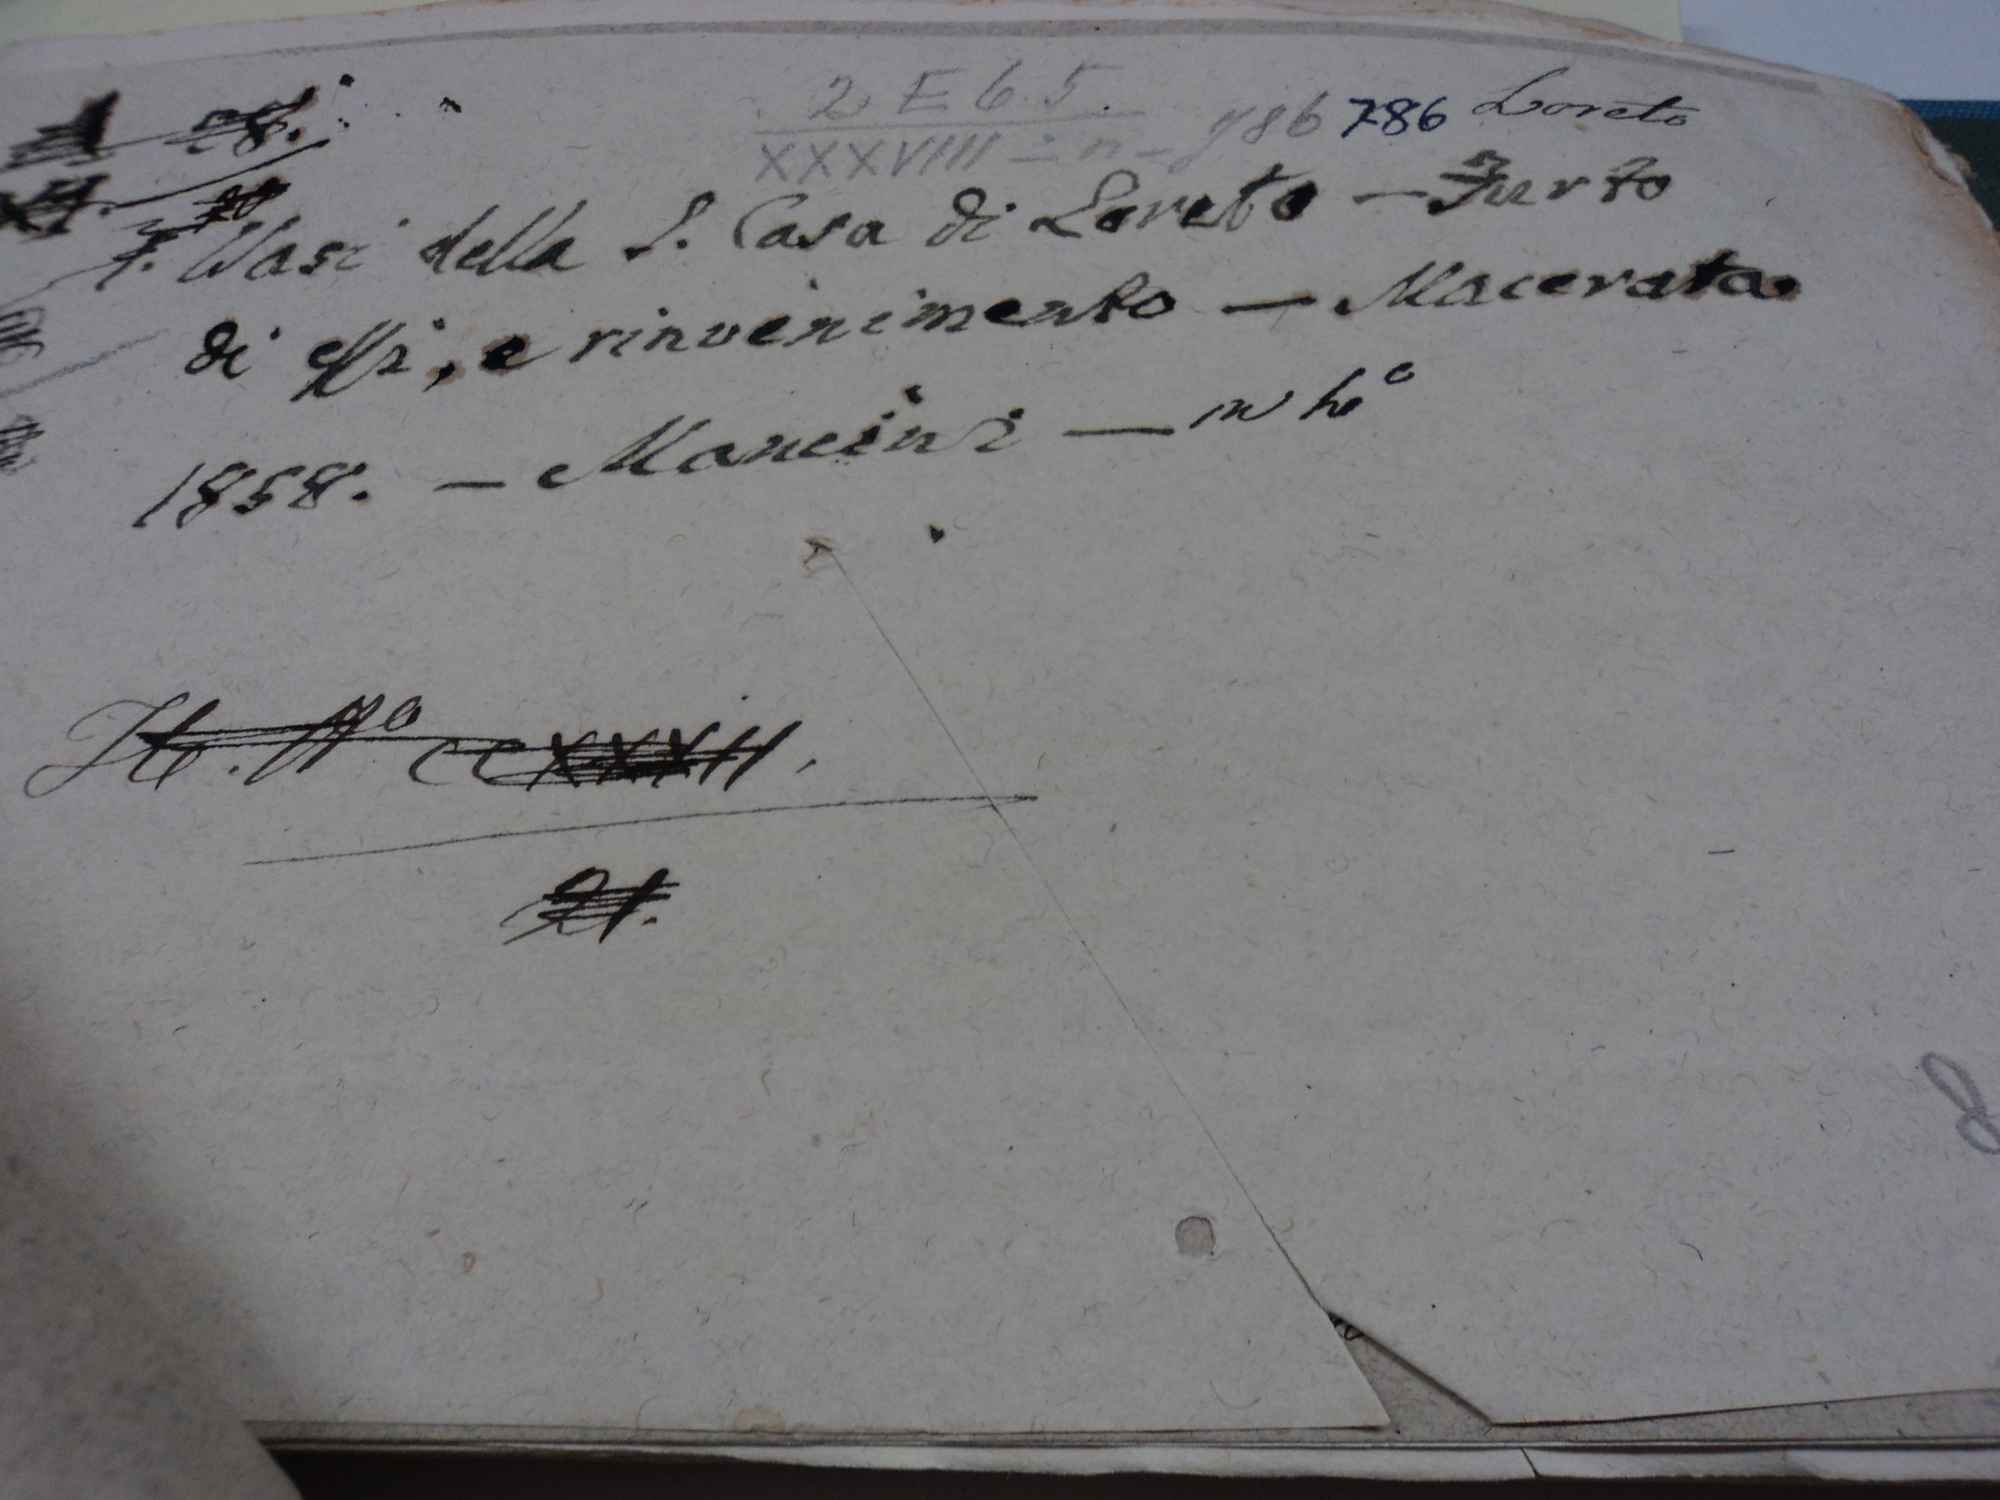 2 E 6.5.
XXXVIII = n - 786 786 Loreto
7. Vasi della S. Casa di Loreto — Furto
di essi, e rinvenimento — Macerata
1858. — Mancini —
N.º CCXXXII.
21.